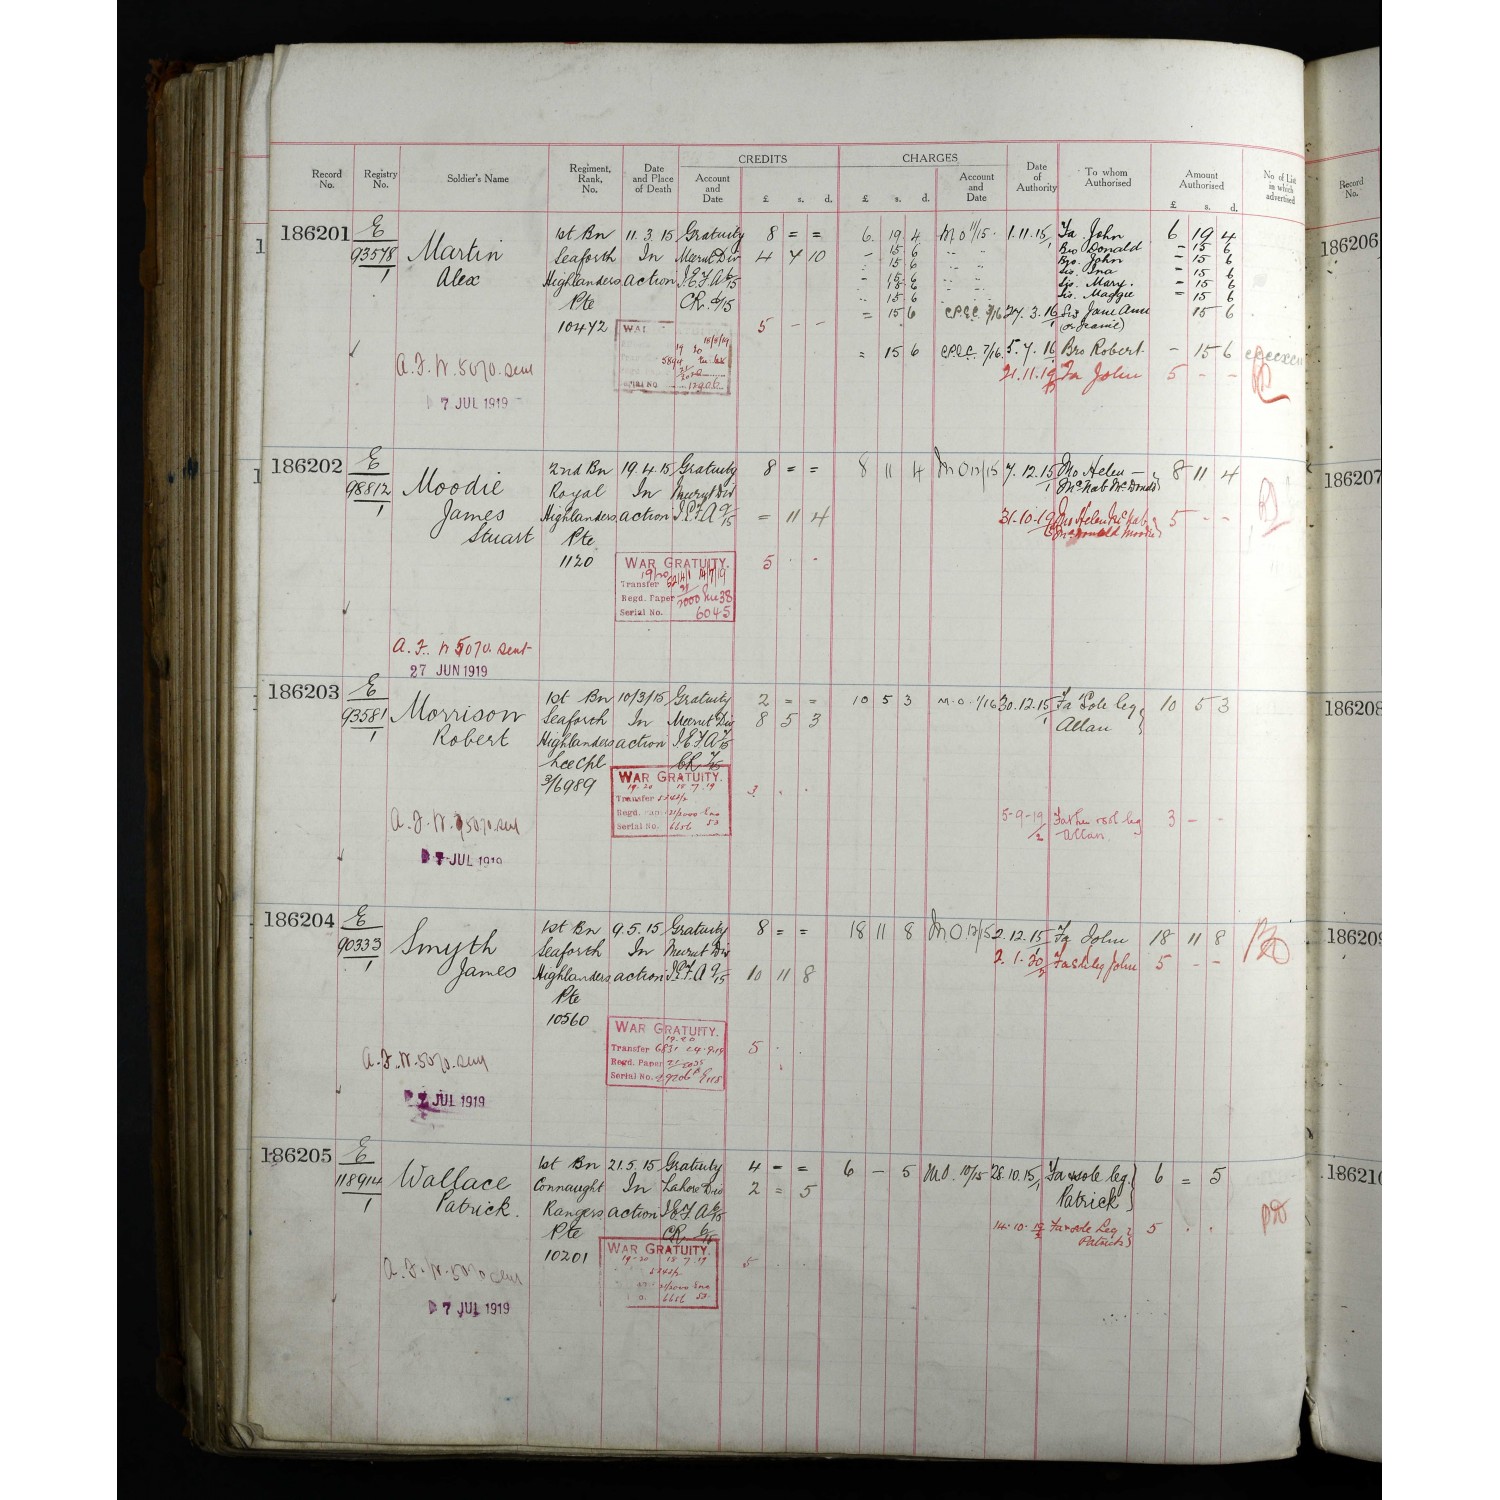 CREDITS CHARGES
Record No. Registry No. Soldier's Name Regiment, Rank, No. Date and Place of Death Account and Date £ s. d. £ s. d. Account and Date Date of Authority To whom Authorised Amount Authorised £ s. d. No of List in which advertised Record No.
186201 E 1st Bn 11.3.15 Gratuity 8 = = 6. 19 4 M.O 11/15. 1.11.15/1 Fa John 6 19 4
93578/1 Martin Seaforth In Meerut Div 4 7 10 - 15 6 Bro Donald - 15 6
15 6 Bro. John - 15 6
Alex Highlanders action I.E.F.A - 15 6 Sis. Ina = 15 6
15 6 Sis. Mary. - 15 6
Pte CR. 15 6 Sis. Maggie = 15 6
10472 = 15 6 27.3.16 Sis Jane Ann 15 6
(or Jeanie)
WAR 5 - -
= 15 6 7/16. 5.7.16 Bro Robert - 15 6
A.F.W.5070.sent 21.11.19 Fa John 5 - -
7 JUL 1919
186202 E 2nd Bn 19.4.15 Gratuity 8 = = 8 11 4 M.O 12/15 7.12.15/1 Mo Helen - 8 11 4
98812/1 Moodie Royal In Meerut Div McNab McDonald
James Highlanders action I.E.F.A 9/15 = 11 4 31.10.19 5 - -
Stuart Pte
1120 WAR GRATUITY. 5 - -
19/20 14/7/19
Transfer
Regd. Paper
Serial No. 6045
A.F.W 5070.sent
27 JUN 1919
186203 E 1st Bn 10/3/15 Gratuity 2 = = 10 5 3 M.O. 1/16 30.12.15/1 Fa Sole leg 10 5 3
93581/1 Morrison Seaforth In Meerut Div 8 5 3 Allan
Robert Highlanders action I.E.F.A
Lce Cpl CR
3/6989 WAR GRATUITY. 3. . .
19-20 18.7.19
Transfer
Regd.
Serial No. 6656 53
A.F.W.5070.sent 5-9-19/2 Father sole leg 3 - -
Allan
7 JUL 1919
186204 E 1st Bn 9.5.15 Gratuity 8 = = 18 11 8 M.O.12/15 2.12.15/1 Fa John 18 11 8
90333/1 Smyth Seaforth In Meerut Div 2.1.20/2 Fa sh leg John 5 - -
James Highlanders action I.E.F.A 9/15 10 11 8
Pte
10560
WAR GRATUITY.
19.20
Transfer 5 . .
Regd. Paper
Serial No.
A.F.W.5070.sent
7 JUL 1919
186205 E 1st Bn 21.5.15 Gratuity 4 = = 6 - 5 M.O. 10/15 28.10.15/1 Fa & sole leg. 6 = 5
118914/1 Wallace Connaught In Lahore Div 2 = 5 Patrick
Patrick. Rangers action I.E.F.A
Pte CR 14.10.19 Fa & sole leg 5 . .
Patrick
10201 WAR GRATUITY.
19-20 18.7.19
5 . .
6656 53
A.F.W.5070 sent
7 JUL 1919
186206
186207
186208
186209
186210